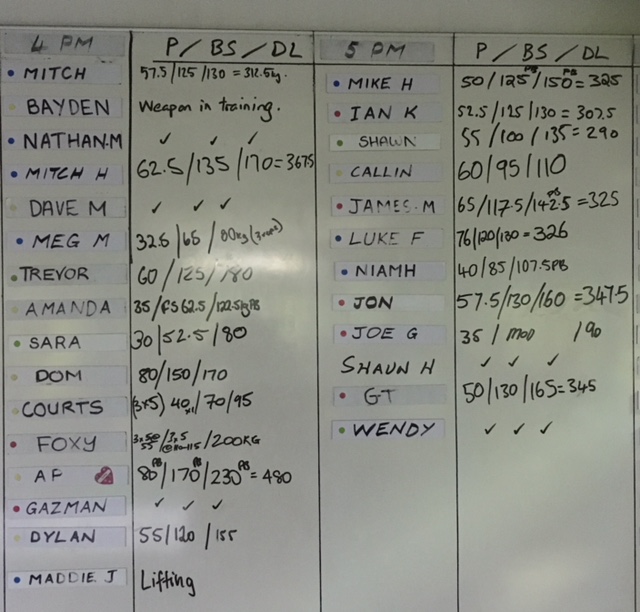 4 PM P / BS / DL
MITCH 57.5/125/130 = 312.5kg.
BAYDEN Weapon in training.
NATHAN.M ✓ ✓ ✓
MITCH H 62.5/135/170=367.5
DAVE M ✓ ✓ ✓
MEG M 32.5/65/80kg (3reps)
TREVOR 60/125/180
AMANDA 35/FS 62.5/122.5kg PB
SARA 30/52.5/80
DOM 80/150/170
COURTS (3x5) 40/70/95
FOXY /200KG
AP 80 PB/170 PB/230 PB = 480
GAZMAN ✓ ✓ ✓
DYLAN 55/120/155
MADDIE J Lifting
5 PM P / BS / DL
MIKE H 50/125 PB/150 PB = 325
IAN K 52.5/125/130 = 307.5
SHAWN 55/100/135 = 290
CALLIN 60/95/110
JAMES.M 65/117.5/142.5 PB = 325
LUKE F 76/120/130 = 326
NIAMH 40/85/107.5 PB
JON 57.5/130/160 = 347.5
JOE G 35/MOD /90
SHAUN H ✓ ✓ ✓
GT 50/130/165=345
WENDY ✓ ✓ ✓